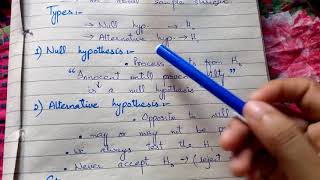 Types:-
→ Null hyp → H₀
→ Alternative hyp. → H₁
1) Null hypothesis:-
• Process starts from H₀
"Innocent untill proven guilty"
is a null hypothesis
2) Alternative hypothesis:-
• Opposite to null
• may or may not be
• we always test the H₀
• Never accept H₀ → (reject